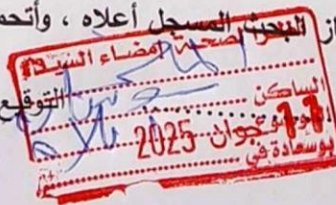 از البحث المسجل أعلاه ، وأتحم
لصحة إمضاء السيد
الساكن
التوقيع
11 جوان 2025
بوسعادة في